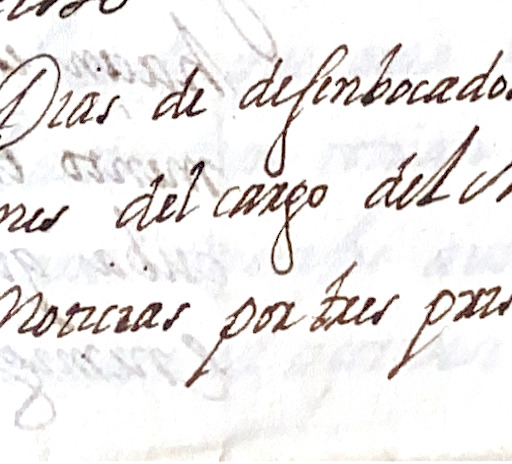 Dias de desenbocados
nes del cargo del
Noticias por tres pris